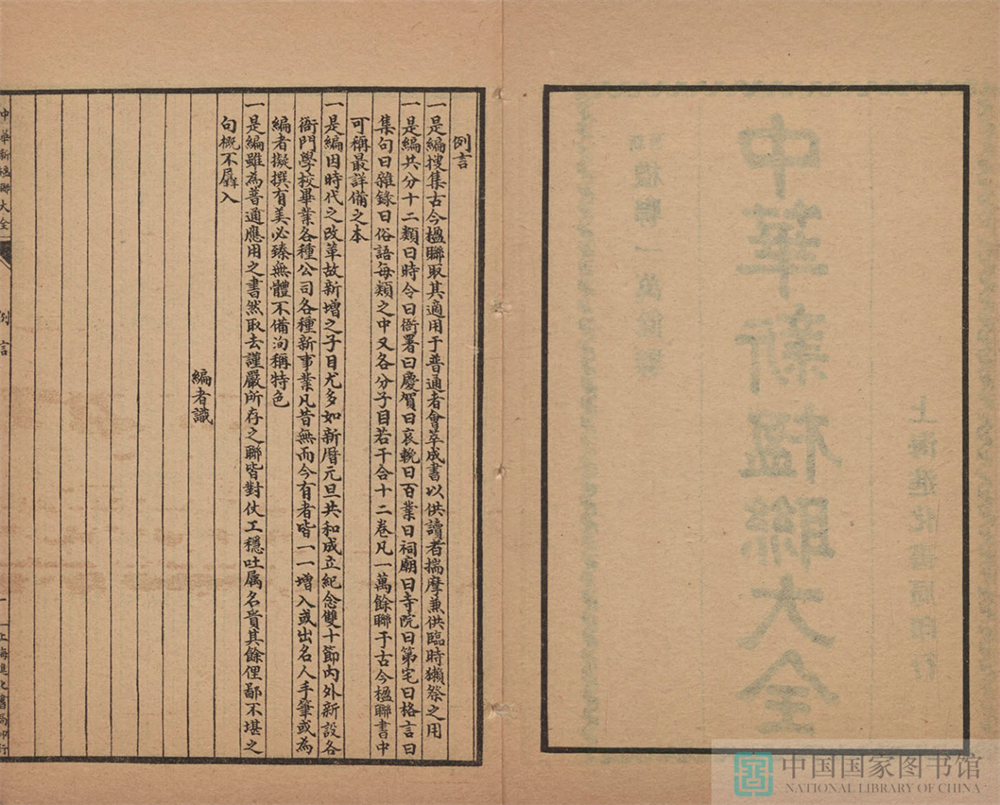 上海進化書局印行
中華新楹聯大全
楹聯一萬餘對
例言
一是編搜集古今楹聯取其適用于普通者會萃成書以供讀者揣摩兼供臨時獺祭之用
一是編共分十二類曰時令曰衙署曰慶賀曰哀輓曰百業曰祠廟曰寺院曰第宅曰格言曰
集句曰雜錄曰俗語每類之中又各分子目若干合十二卷凡一萬餘聯于古今楹聯書中
可稱最詳備之本
一是編因時代之改革故新增之子目尤多如新曆元旦共和成立紀念雙十節內外新設各
衙門學校畢業各種公司各種新事業凡昔無而今有者皆一一增入或出名人手筆或為
編者擬撰有美必臻無體不備洵稱特色
一是編雖為普通應用之書然取去謹嚴所存之聯皆對仗工穩吐屬名貴其餘俚鄙不堪之
句概不羼入
編者識
中華新楹聯大全
例言
一
上海進化書局印行
中国国家图书馆
NATIONAL LIBRARY OF CHINA